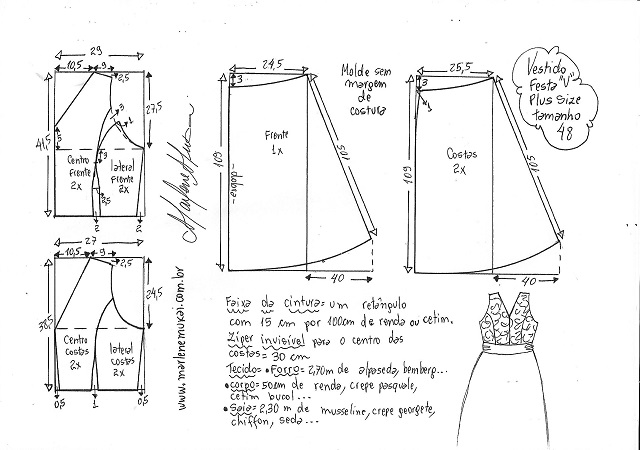 29
10,5
9
2,5
3
1
27,5
41,5
5
3
Centro
Frente
2x
lateral
Frente
2x
2,5
2
2
27
10,5
9
2,5
24,5
38,5
Centro
costas
2x
lateral
costas
2x
0,5
1
0,5
Marlene Mukai
www.marlenemukai.com.br
24,5
3
Frente
1x
109
-dobra-
105
40
Molde sem
margem
de
costura
25,5
3
1
Costas
2x
109
105
40
Vestido
Festa "V"
Plus Size
tamanho
48
Faixa da cintura= um retângulo
com 15 cm por 100cm de renda ou cetim.
Zíper invisível para o centro das
costas = 30 cm
Tecido= •Forro= 2,70m de alpaseda, bemberg...
•corpo= 50cm de renda, crepe pasquale,
cetim bucol...
•Saia= 2,30 m de musseline, crepe georgete,
chiffon, seda...